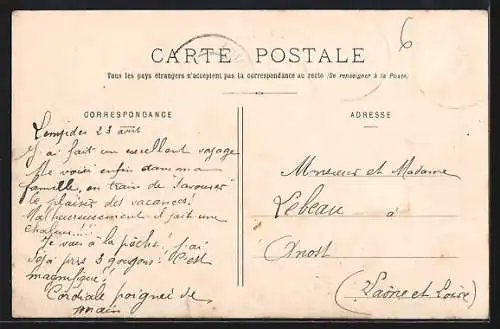 6
CARTE POSTALE
Tous les pays étrangers n'acceptent pas la correspondance au recto (Se renseigner à la Poste).
CORRESPONDANCE
Lempdes 23 août
J'ai fait un excellent voyage
Me voici enfin dans ma
famille, en train de savourer
le plaisir des vacances!
Malheureusement il fait une
chaleur!!!
Je vais à la pêche! j'ai
déjà pris 3 goujons! C'est
magnifique!
Cordiale poignée de
main
ADRESSE
Monsieur et Madame
Lebeau à
Anost
(Saône et Loire)